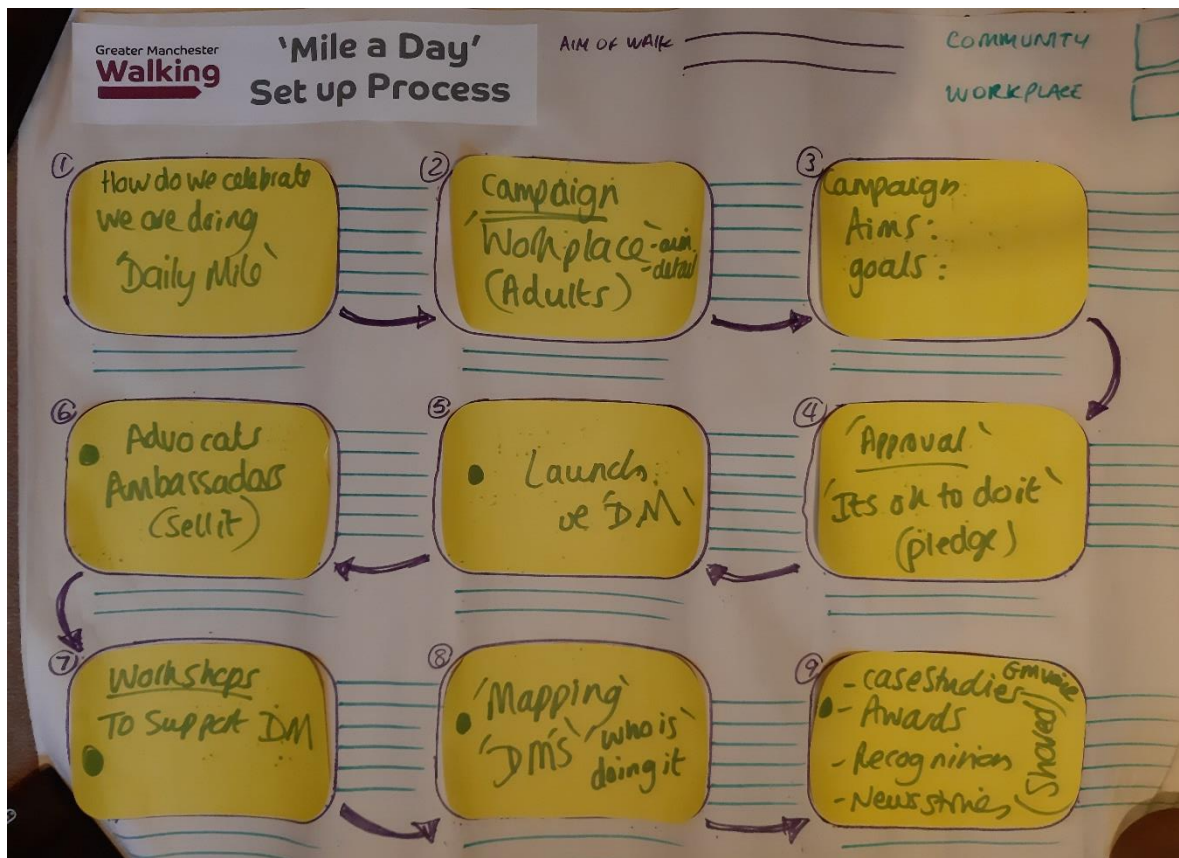 Greater Manchester
Walking
'Mile a Day'
Set up Process
AIM OF WALK
COMMUNITY
WORKPLACE
1
How do we celebrate
we are doing
'Daily Mile'
2
Campaign
'Workplace' - aim
- detail
(Adults)
3
Campaign:
Aims:
goals:
6
Advocats
Ambassadors
(sell it)
5
Launch:
'DM'
4
'Approval'
'Its ok to do it'
(pledge)
7
Workshops
To Support DM
8
'Mapping'
'DM's' 'who is
doing it'
9
- case studies
- Awards
- Recogninion
- News stories
(Shared)